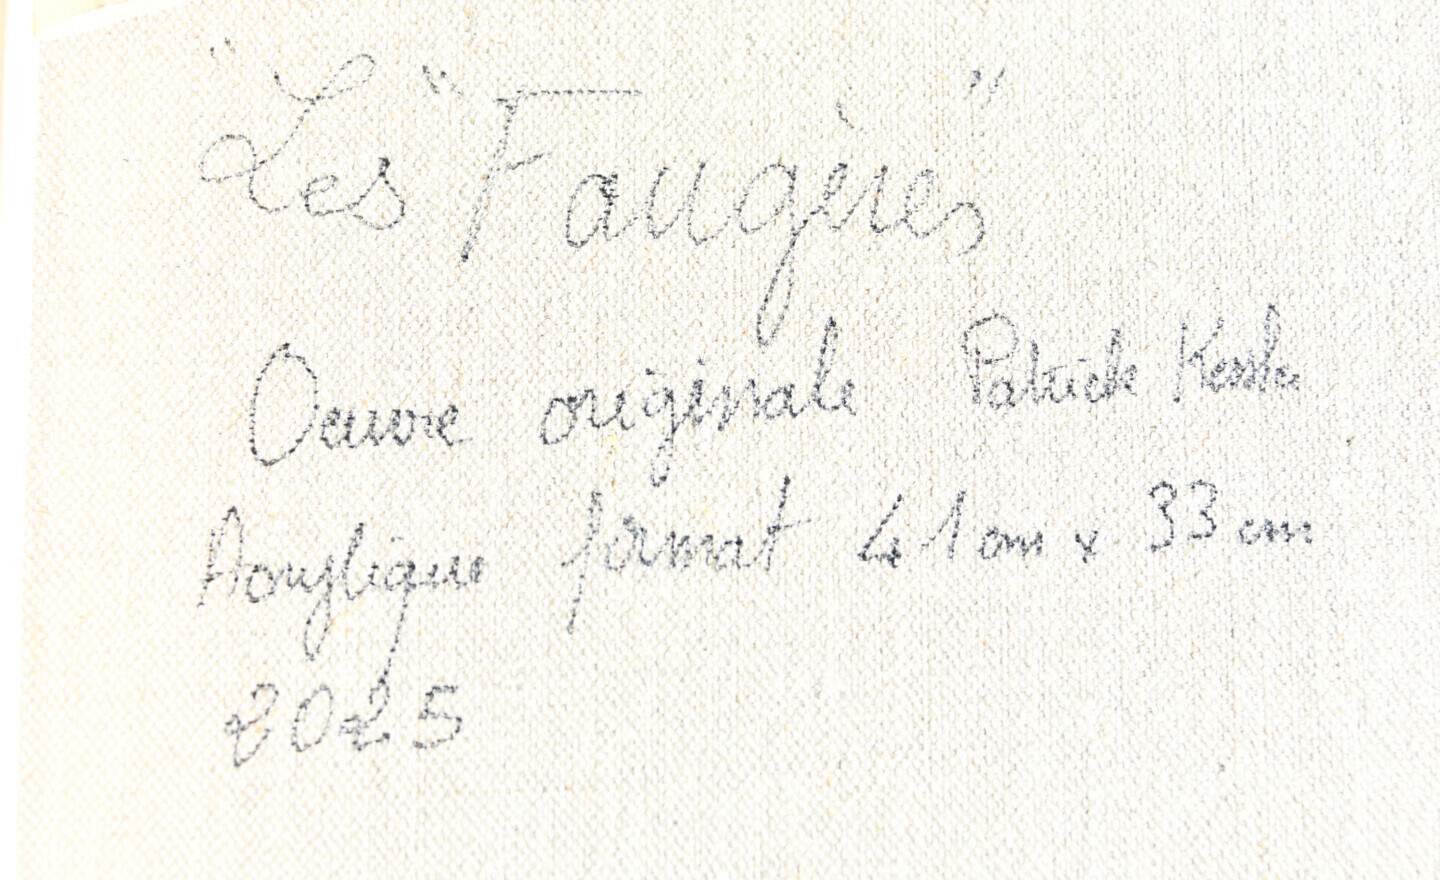 "Les "Faugères"
Oeuvre originale Patrick Kessler
Acrylique format 41cm x 33cm
2025